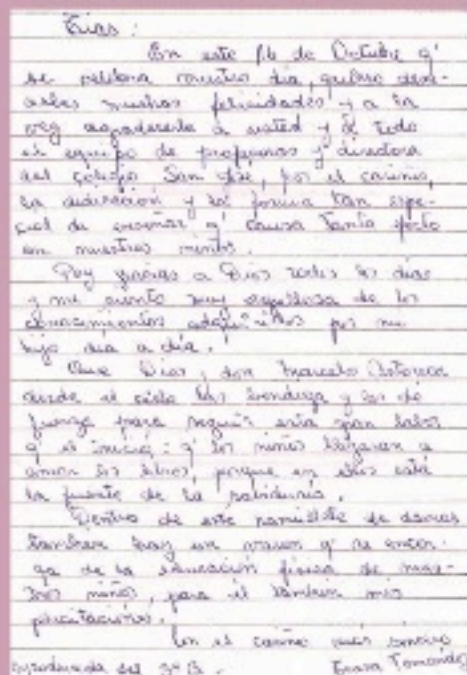 En este 16 de Octubre q'
se celebra nuestro día, quiero dese-
arles muchas felicidades y a la
vez agradecerle a usted y a todo
el equipo de profesoras y directora
del colegio San José, por el cariño,
la dedicación y la forma tan espe-
cial de enseñar q' causa tanto
en nuestros
Doy gracias a Dios todos los días
y me siento muy orgullosa de los
conocimientos adquiridos por mi
hijo día a día.
Que Dios y don Marcelo
desde el cielo los bendiga y les dé
fuerza para seguir esta gran labor
q' él inició: q' los niños llegaran a
amar los libros, porque en ellos está
la fuente de la sabiduría.
Dentro de este de damas
también hay un varon q' se encar-
ga de la educación física de nues-
tros niños, para él también mis
felicitaciones.
Con el cariño más sincero
Apoderada del 3º B.